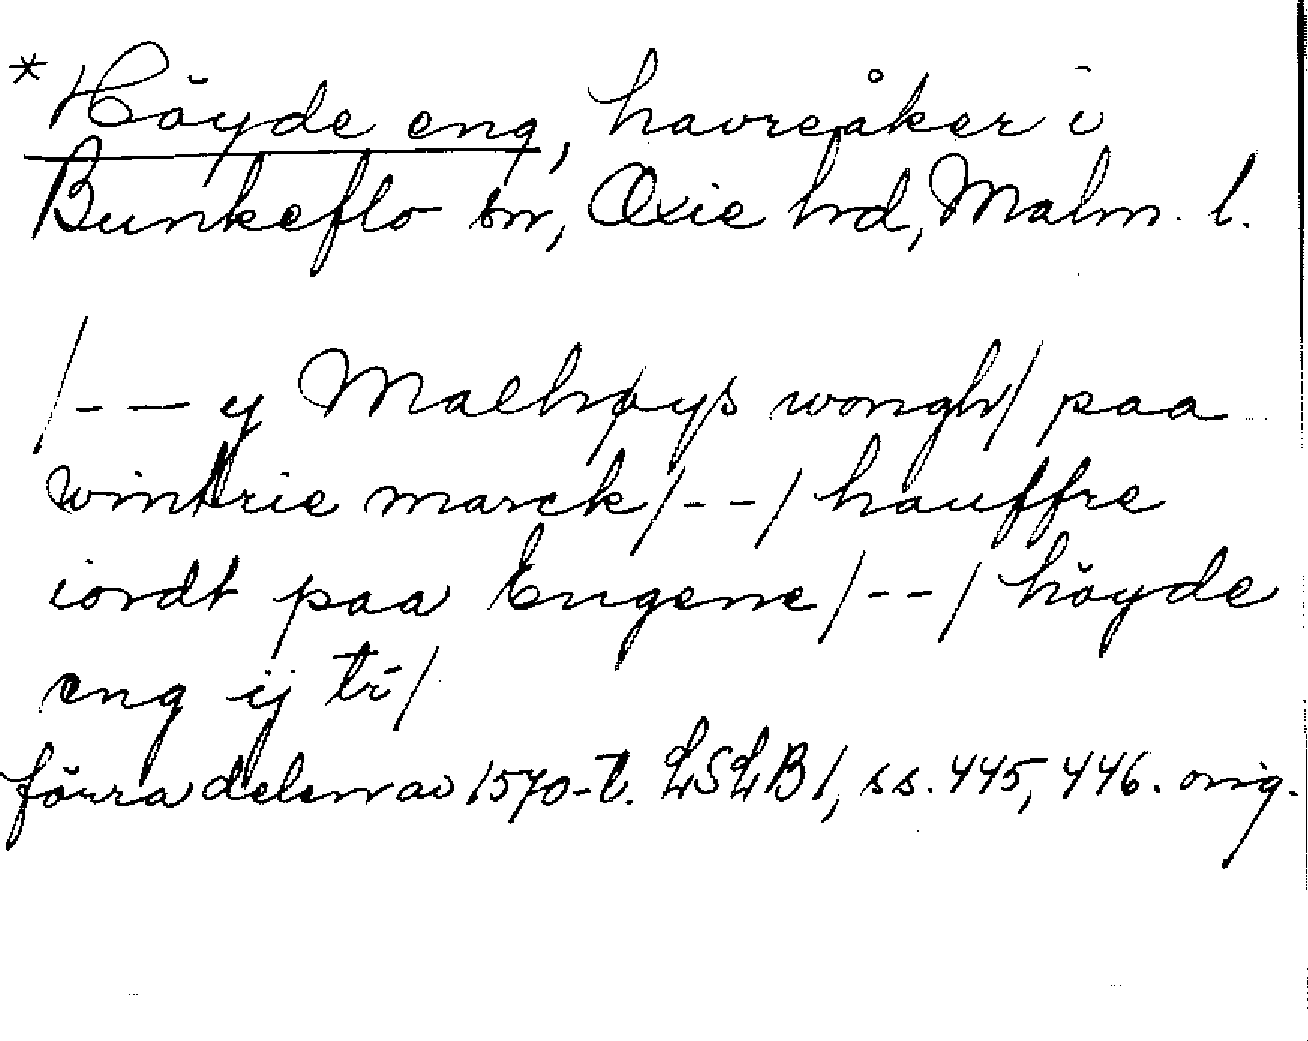 * Höyde eng, havreåker i
Bunkeflo sn, Oxie hd, Malm. l.
/-- y Malhøys wongh/ paa
wintrie marck/--/ hauffre
iordt paa Engene/--/ höyde
eng ij tr/
förra delen av 1570-t. LSLB 1, ss. 445, 446. orig.